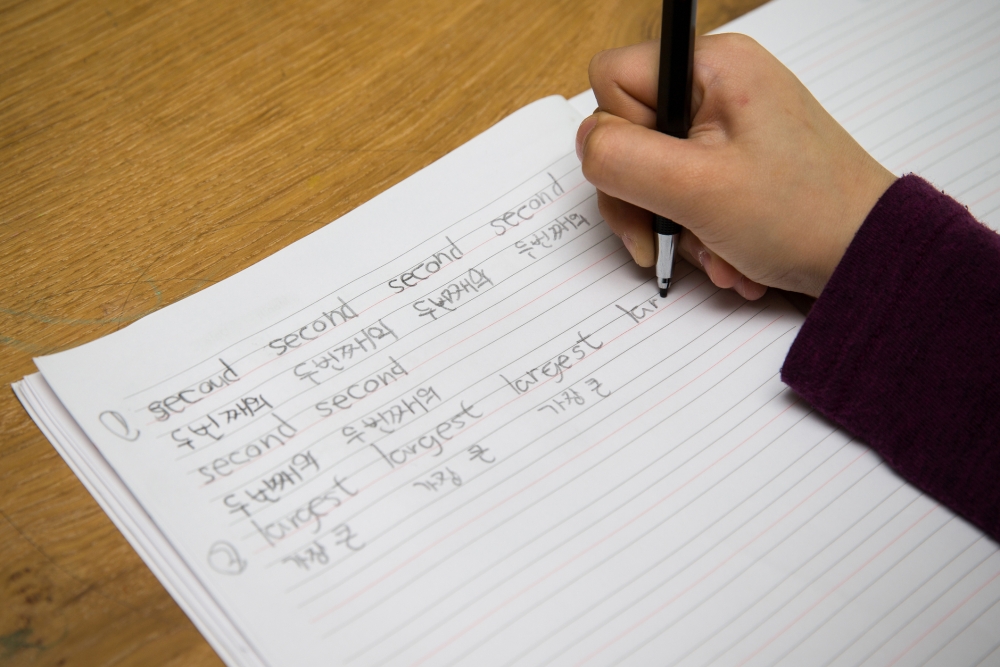 ① second second second second
두번째의 두번째의 두번째의 두번째의
second second
두번째의 두번째의
② largest largest largest lar
가장 큰 가장 큰 가장 큰